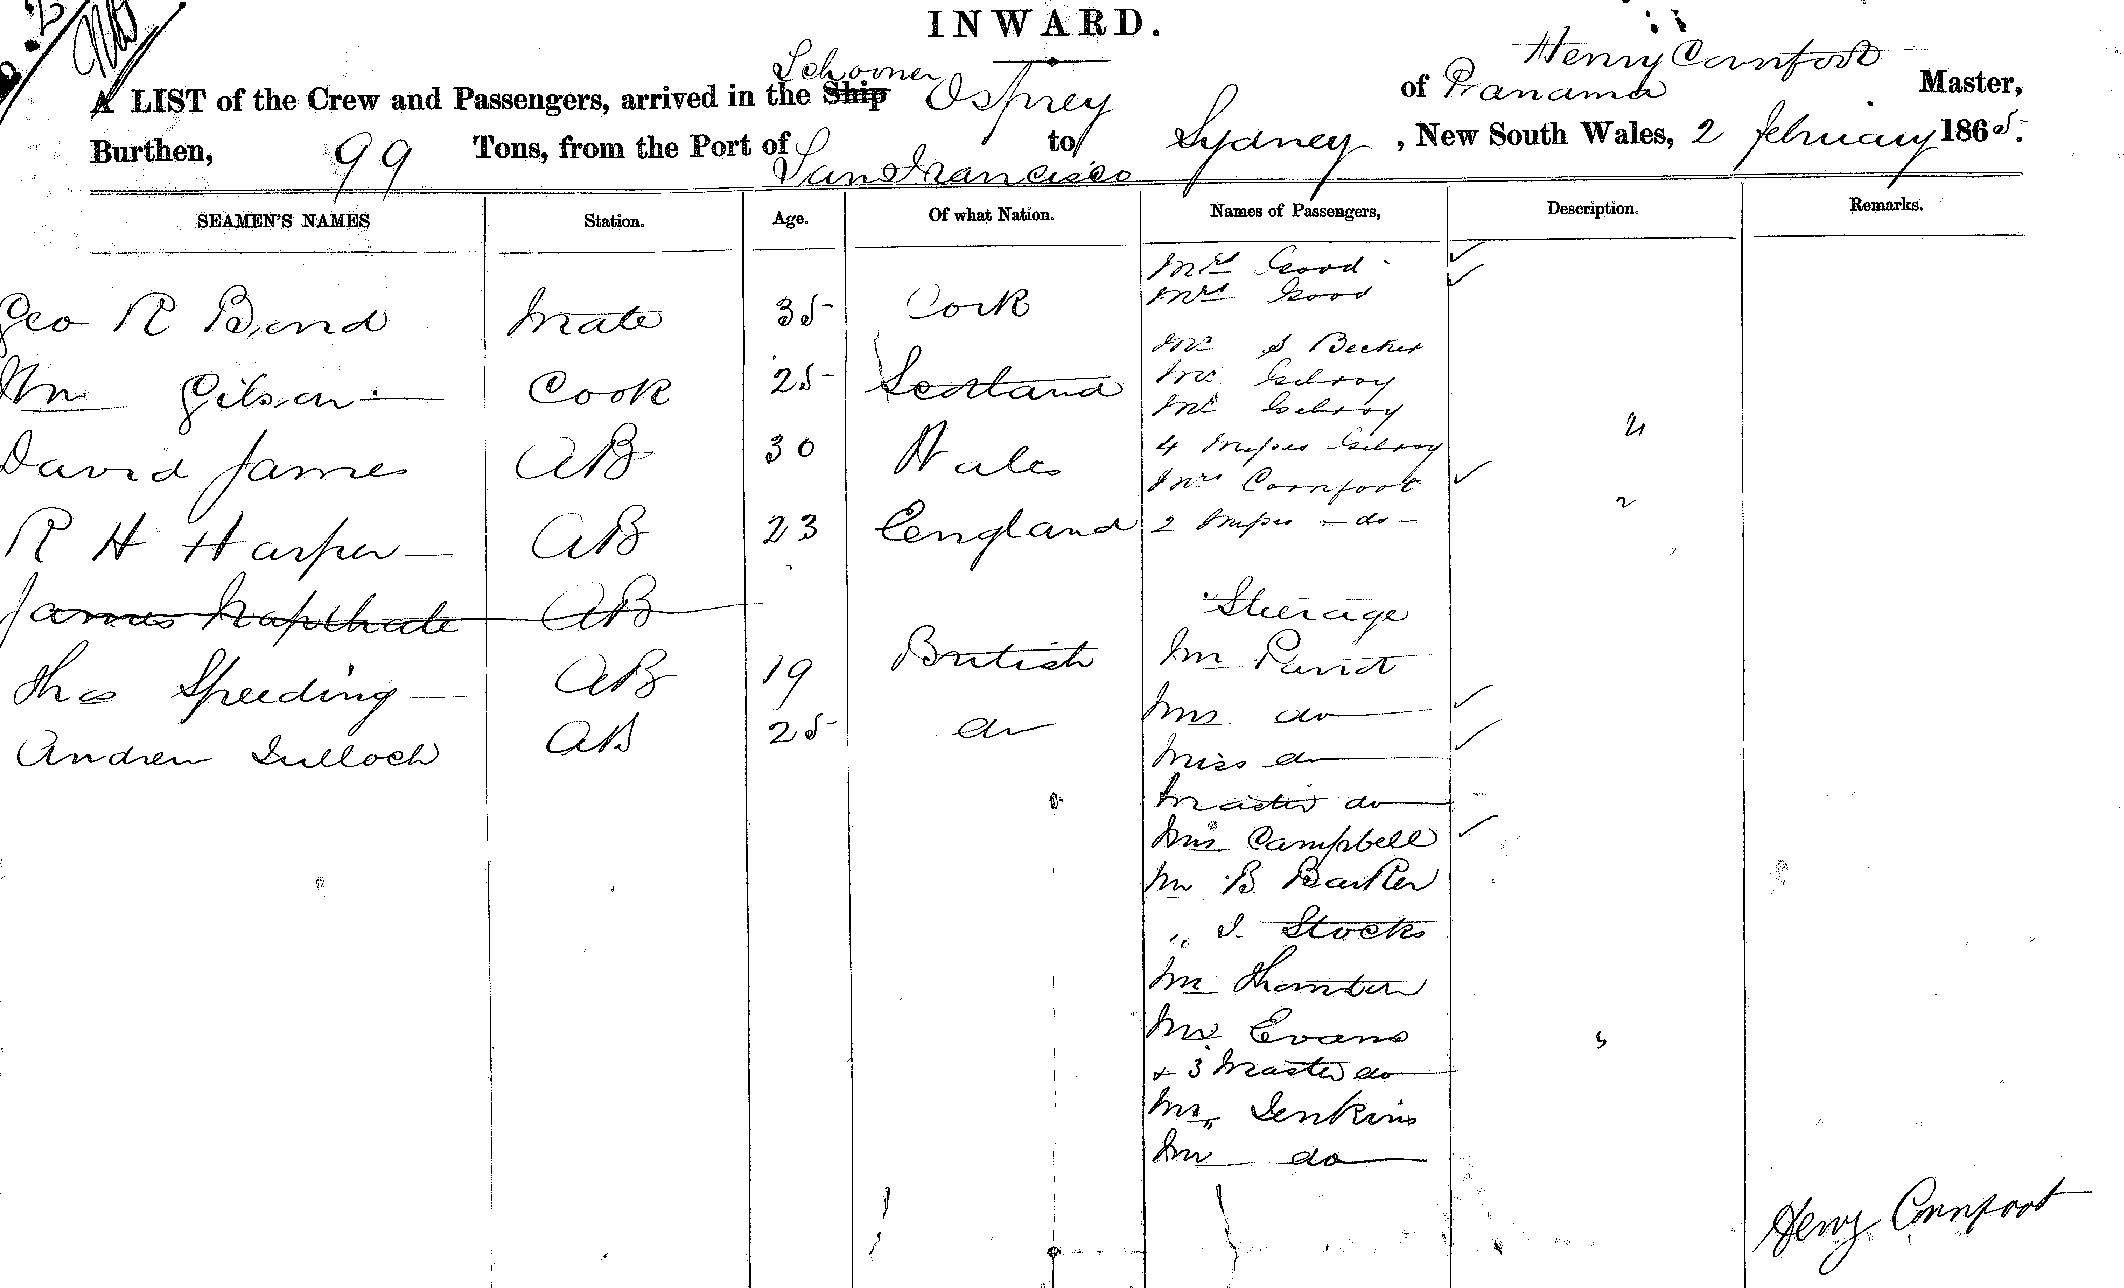 INWARD.
Schooner Henry Cornfoot
A LIST of the Crew and Passengers, arrived in the Ship Osprey of Panama Master,
Burthen, 99 Tons, from the Port of San Francisco to Sydney, New South Wales, 2 february 1865.
SEAMEN'S NAMES Station. Age. Of what Nation. Names of Passengers, Description. Remarks.
Mrs Good
Mrs Good
Geo R Bend Mate 35 Cork
Mr S Becker
Wm Gilson Cook 25 Scotland
Mr Gilroy
Mr Gilroy
David James AB 30 Wales
4 Misses Gilroy 4
Mrs Cornfoot
R H Harper AB 23 England
2 Misses do 2
James AB
Steerage
Thos Speeding AB 19 British
Mr
Mrs do
Andrew Tulloch AB 25 do
Miss do
Master do
Mrs Campbell
Mr B Barker
„ J. Stocks
Mr
Mr Evans
+ 3 Master do 3
Mrs Jenkins
Mr do
Henry Cornfoot